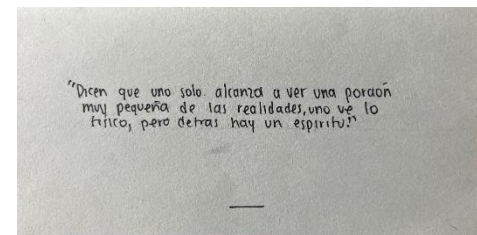 "Dicen que uno solo. alcanza a ver una porción
muy pequeña de las realidades, uno ve lo
físico, pero detras hay un espiritu."